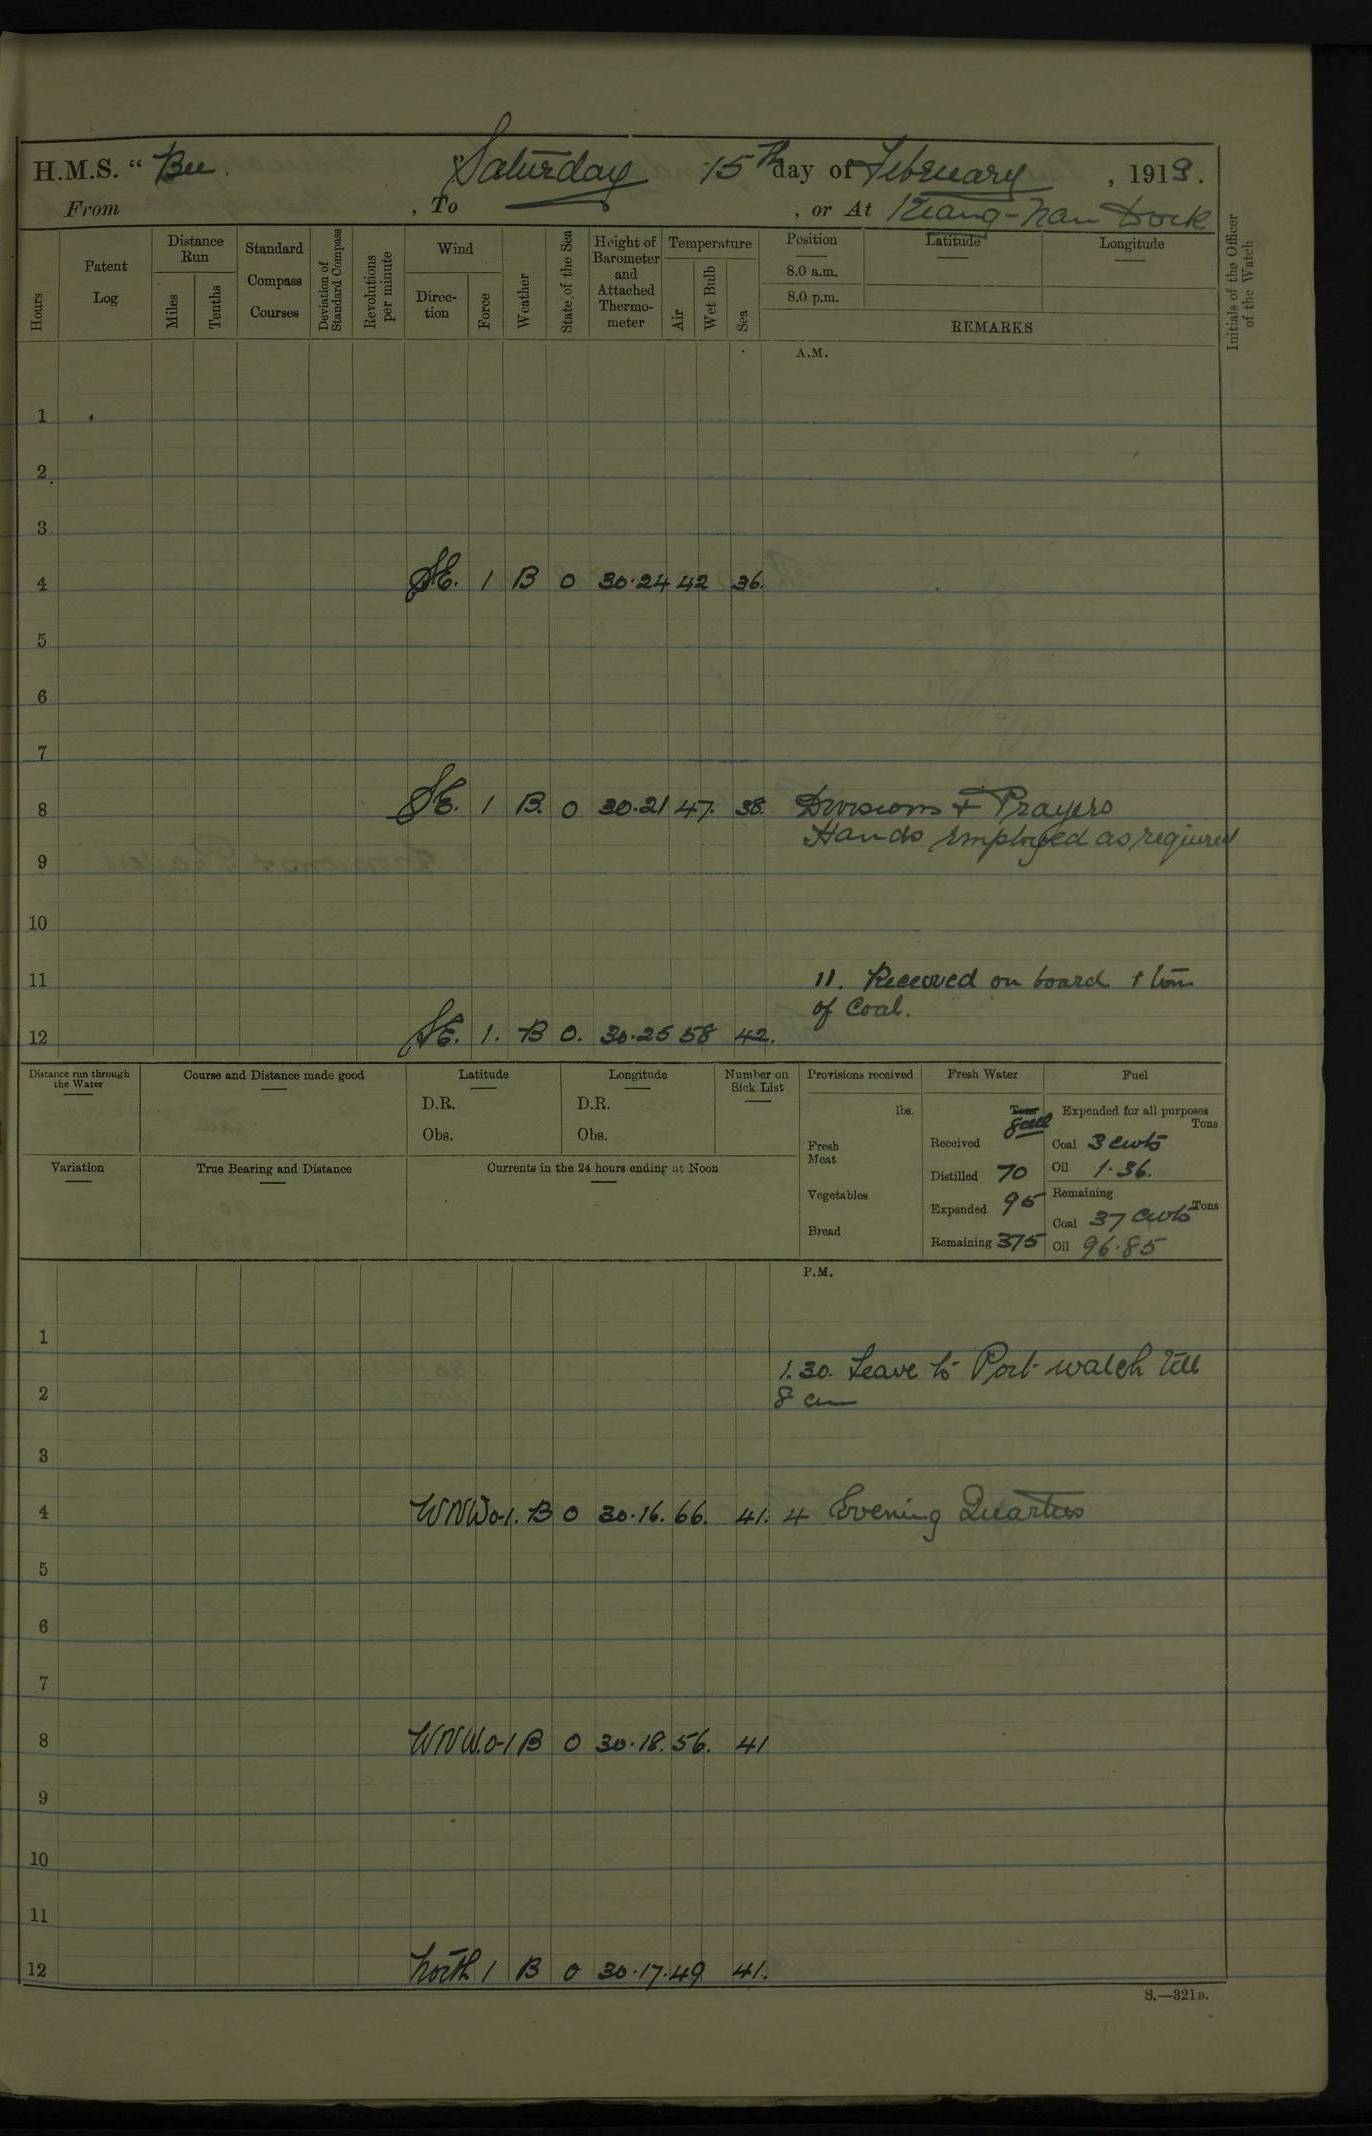 H.M.S. “ Bee. Saturday 15th day of February , 1919.
From , To , or At Kiang-nan Dock
Hours
Patent Log
Distance Run
Miles
Tenths
Standard Compass Courses
Deviation of Standard Compass
Revolutions per minute
Wind
Direc-tion
Force
Weather
State of the Sea
Height of Barometer and Attached Thermo-meter
Temperature
Air
Wet Bulb
Sea
Position
8.0 a.m.
8.0 p.m.
Latitude
Longitude
REMARKS
Initials of the Officer of the Watch
A.M.
1
2
3
4 SE. 1 B 0 30.24 42 36.
5
6
7
8 SE. 1 B. 0 30.21 47. 38. Divisions + Prayers
Hands employed as required
9
10
11 11. Received on board 1 ton
of Coal.
12 SE. 1. B 0. 30.25 58 42.
Distance run through the Water
Course and Distance made good
Latitude
D.R.
Obs.
Longitude
D.R.
Obs.
Number on Sick List
Provisions received
lbs.
Fresh Meat
Vegetables
Bread
Fresh Water
Tons
Received
Distilled 70
Expended 95
Remaining 375
Fuel
Expended for all purposes
Tons
Coal 3 cwts
Oil 1.36.
Remaining
Tons
Coal 37 cwts
Oil 96.85
Variation
True Bearing and Distance
Currents in the 24 hours ending at Noon
P.M.
1
1.30. Leave to Port watch till
2 8 am
3
4 WNW 0-1. B 0 30.16. 66. 41. 4 Evening Quarters
5
6
7
8 WNW. 0-1 B 0 30.18. 56. 41
9
10
11
12 North 1 B 0 30.17. 49 41.
S.—321B.